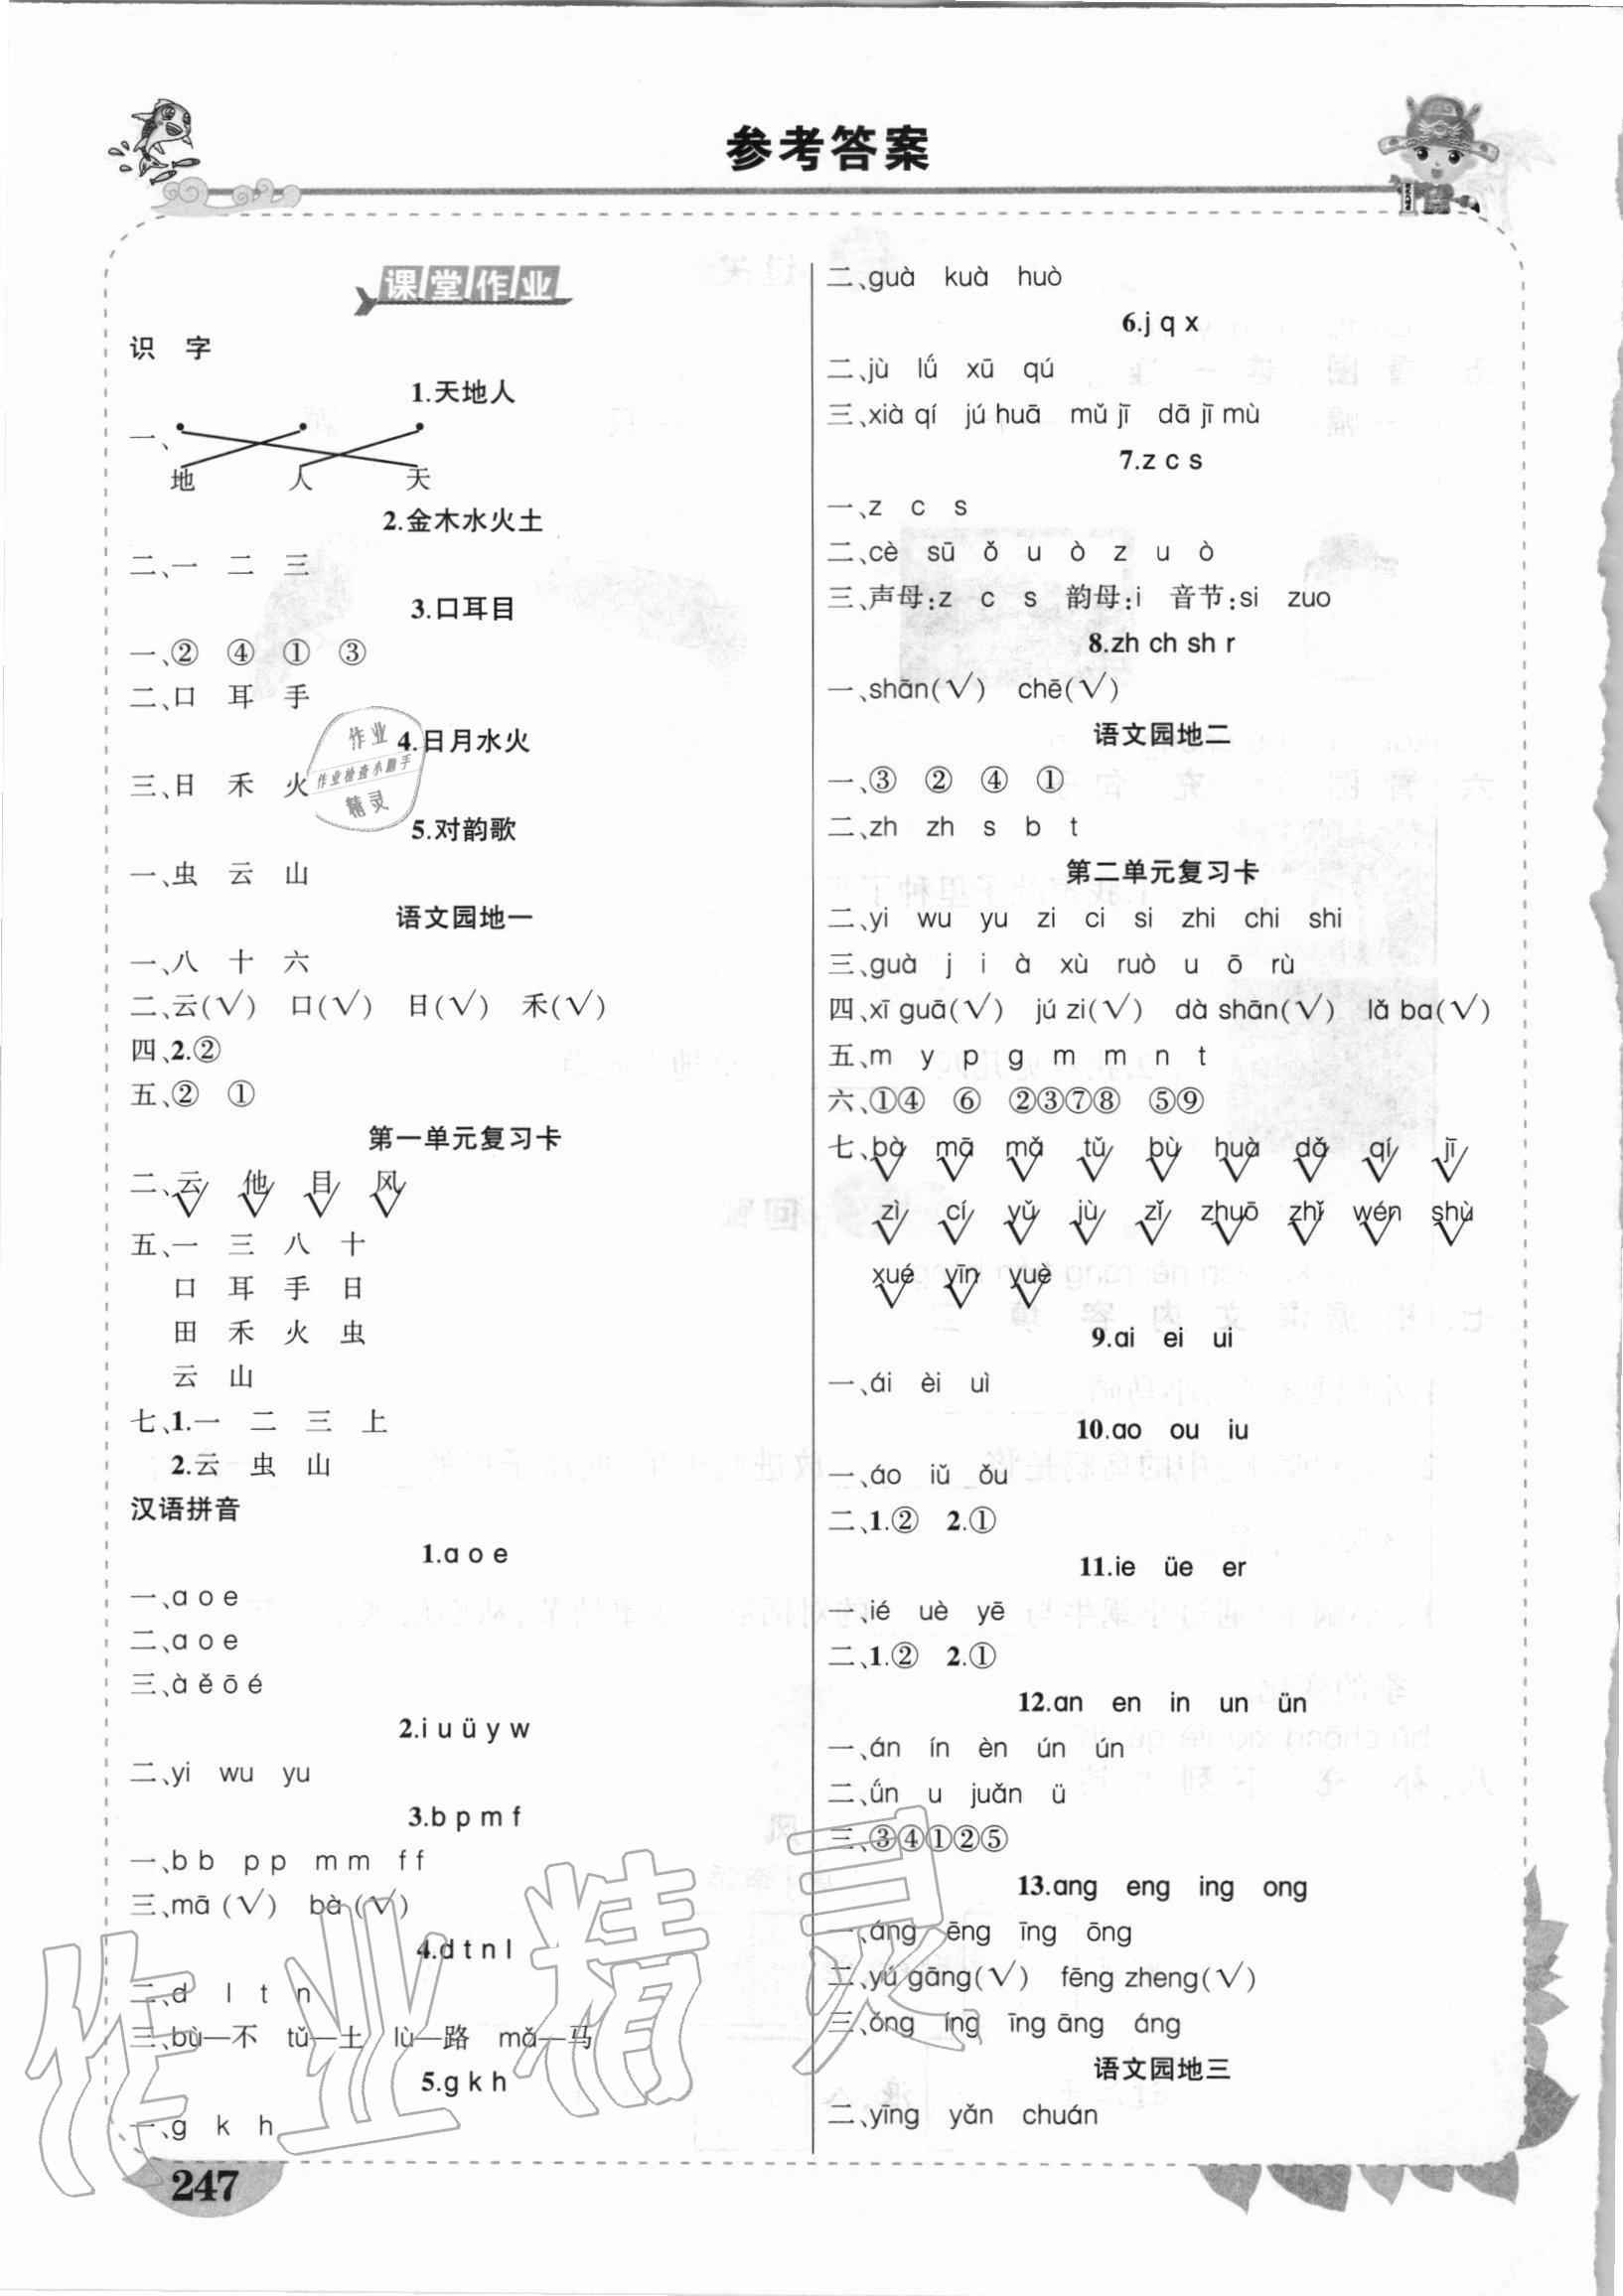 参考答案
课堂作业
识 字
1.天地人
一、
地 人 天
2.金木水火土
二、一 二 三
3.口耳目
一、② ④ ① ③
二、口 耳 手
4.日月水火
三、日 禾 火
5.对韵歌
一、虫 云 山
语文园地一
一、八 十 六
二、云(√) 口(√) 日(√) 禾(√)
四、2.②
五、② ①
第一单元复习卡
二、云 他 目 风
五、一 三 八 十
口 耳 手 日
田 禾 火 虫
云 山
七、1.一 二 三 上
2.云 虫 山
汉语拼音
1.a o e
一、a o e
二、a o e
三、à ě ō é
2.i u ü y w
二、yi wu yu
3.b p m f
一、b b p p m m f f
三、mā (√) bà (√)
4.d t n l
二、d l t n
三、bù—不 tǔ—土 lù—路 mǎ—马
5.g k h
一、g k h
二、guà kuà huò
6.j q x
二、jù lǘ xū qú
三、xià qí jú huā mǔ jī dā jī mù
7.z c s
一、z c s
二、cè sū ǒ u ò z u ò
三、声母:z c s 韵母:i 音节:si zuo
8.zh ch sh r
一、shān(√) chē(√)
语文园地二
一、③ ② ④ ①
二、zh zh s b t
第二单元复习卡
二、yi wu yu zi ci si zhi chi shi
三、guà j i à xù ruò u ō rù
四、xī guā(√) jú zi(√) dà shān(√) lǎ ba(√)
五、m y p g m m n t
六、①④ ⑥ ②③⑦⑧ ⑤⑨
七、bà mā mǎ tǔ bù huà dǎ qí jī
zì cí yǔ jù zǐ zhuō zhǐ wén shù
xué yīn yuè
9.ai ei ui
一、ái èi uì
10.ao ou iu
一、áo iǔ ǒu
二、1.② 2.①
11.ie üe er
一、ié uè yē
二、1.② 2.①
12.an en in un ün
一、án ín èn ún ún
二、ǘn u juǎn ü
三、③④①②⑤
13.ang eng ing ong
一、áng ēng īng ōng
二、yú gāng(√) fēng zheng(√)
三、ǒng íng īng āng áng
语文园地三
二、yīng yǎn chuán
247
作业
作业检查小助手
精灵
作业精灵